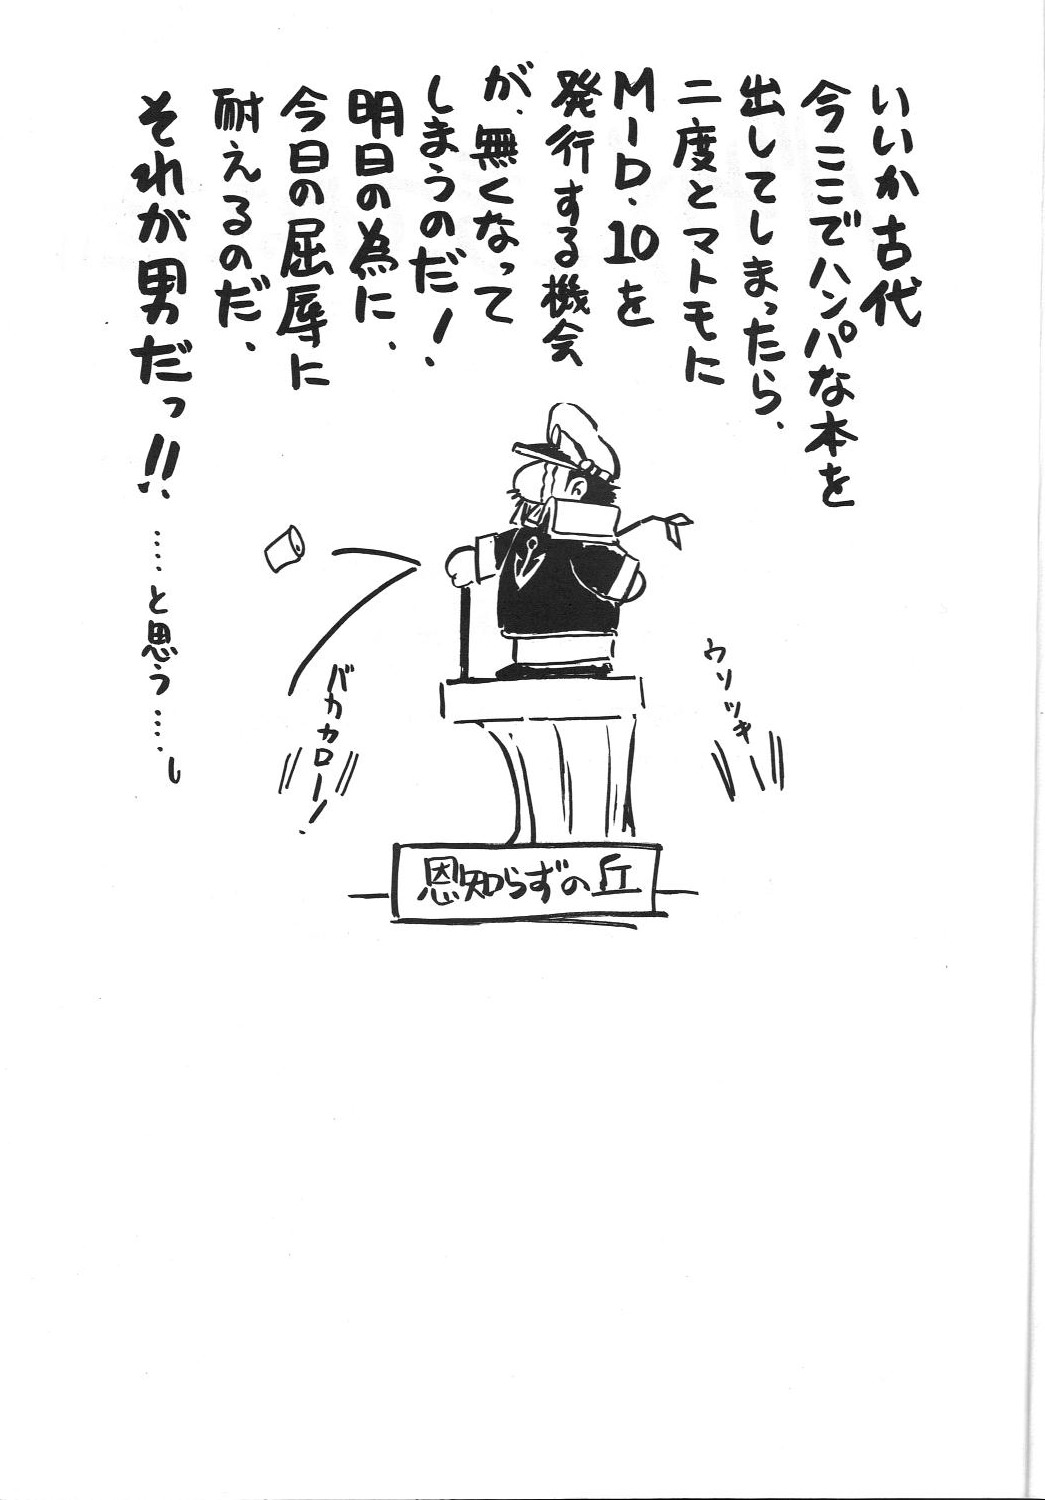 いいか古代
今ここでハンパな本を
出してしまったら、
二度とマトモに
M-D.10を
発行する機会
が、無くなって
しまうのだ!、
明日の為に、
今日の屈辱に
耐えるのだ、
それが男だっ!!……と思う……し
ウソツキ
バカヤロー!
恩知らずの丘